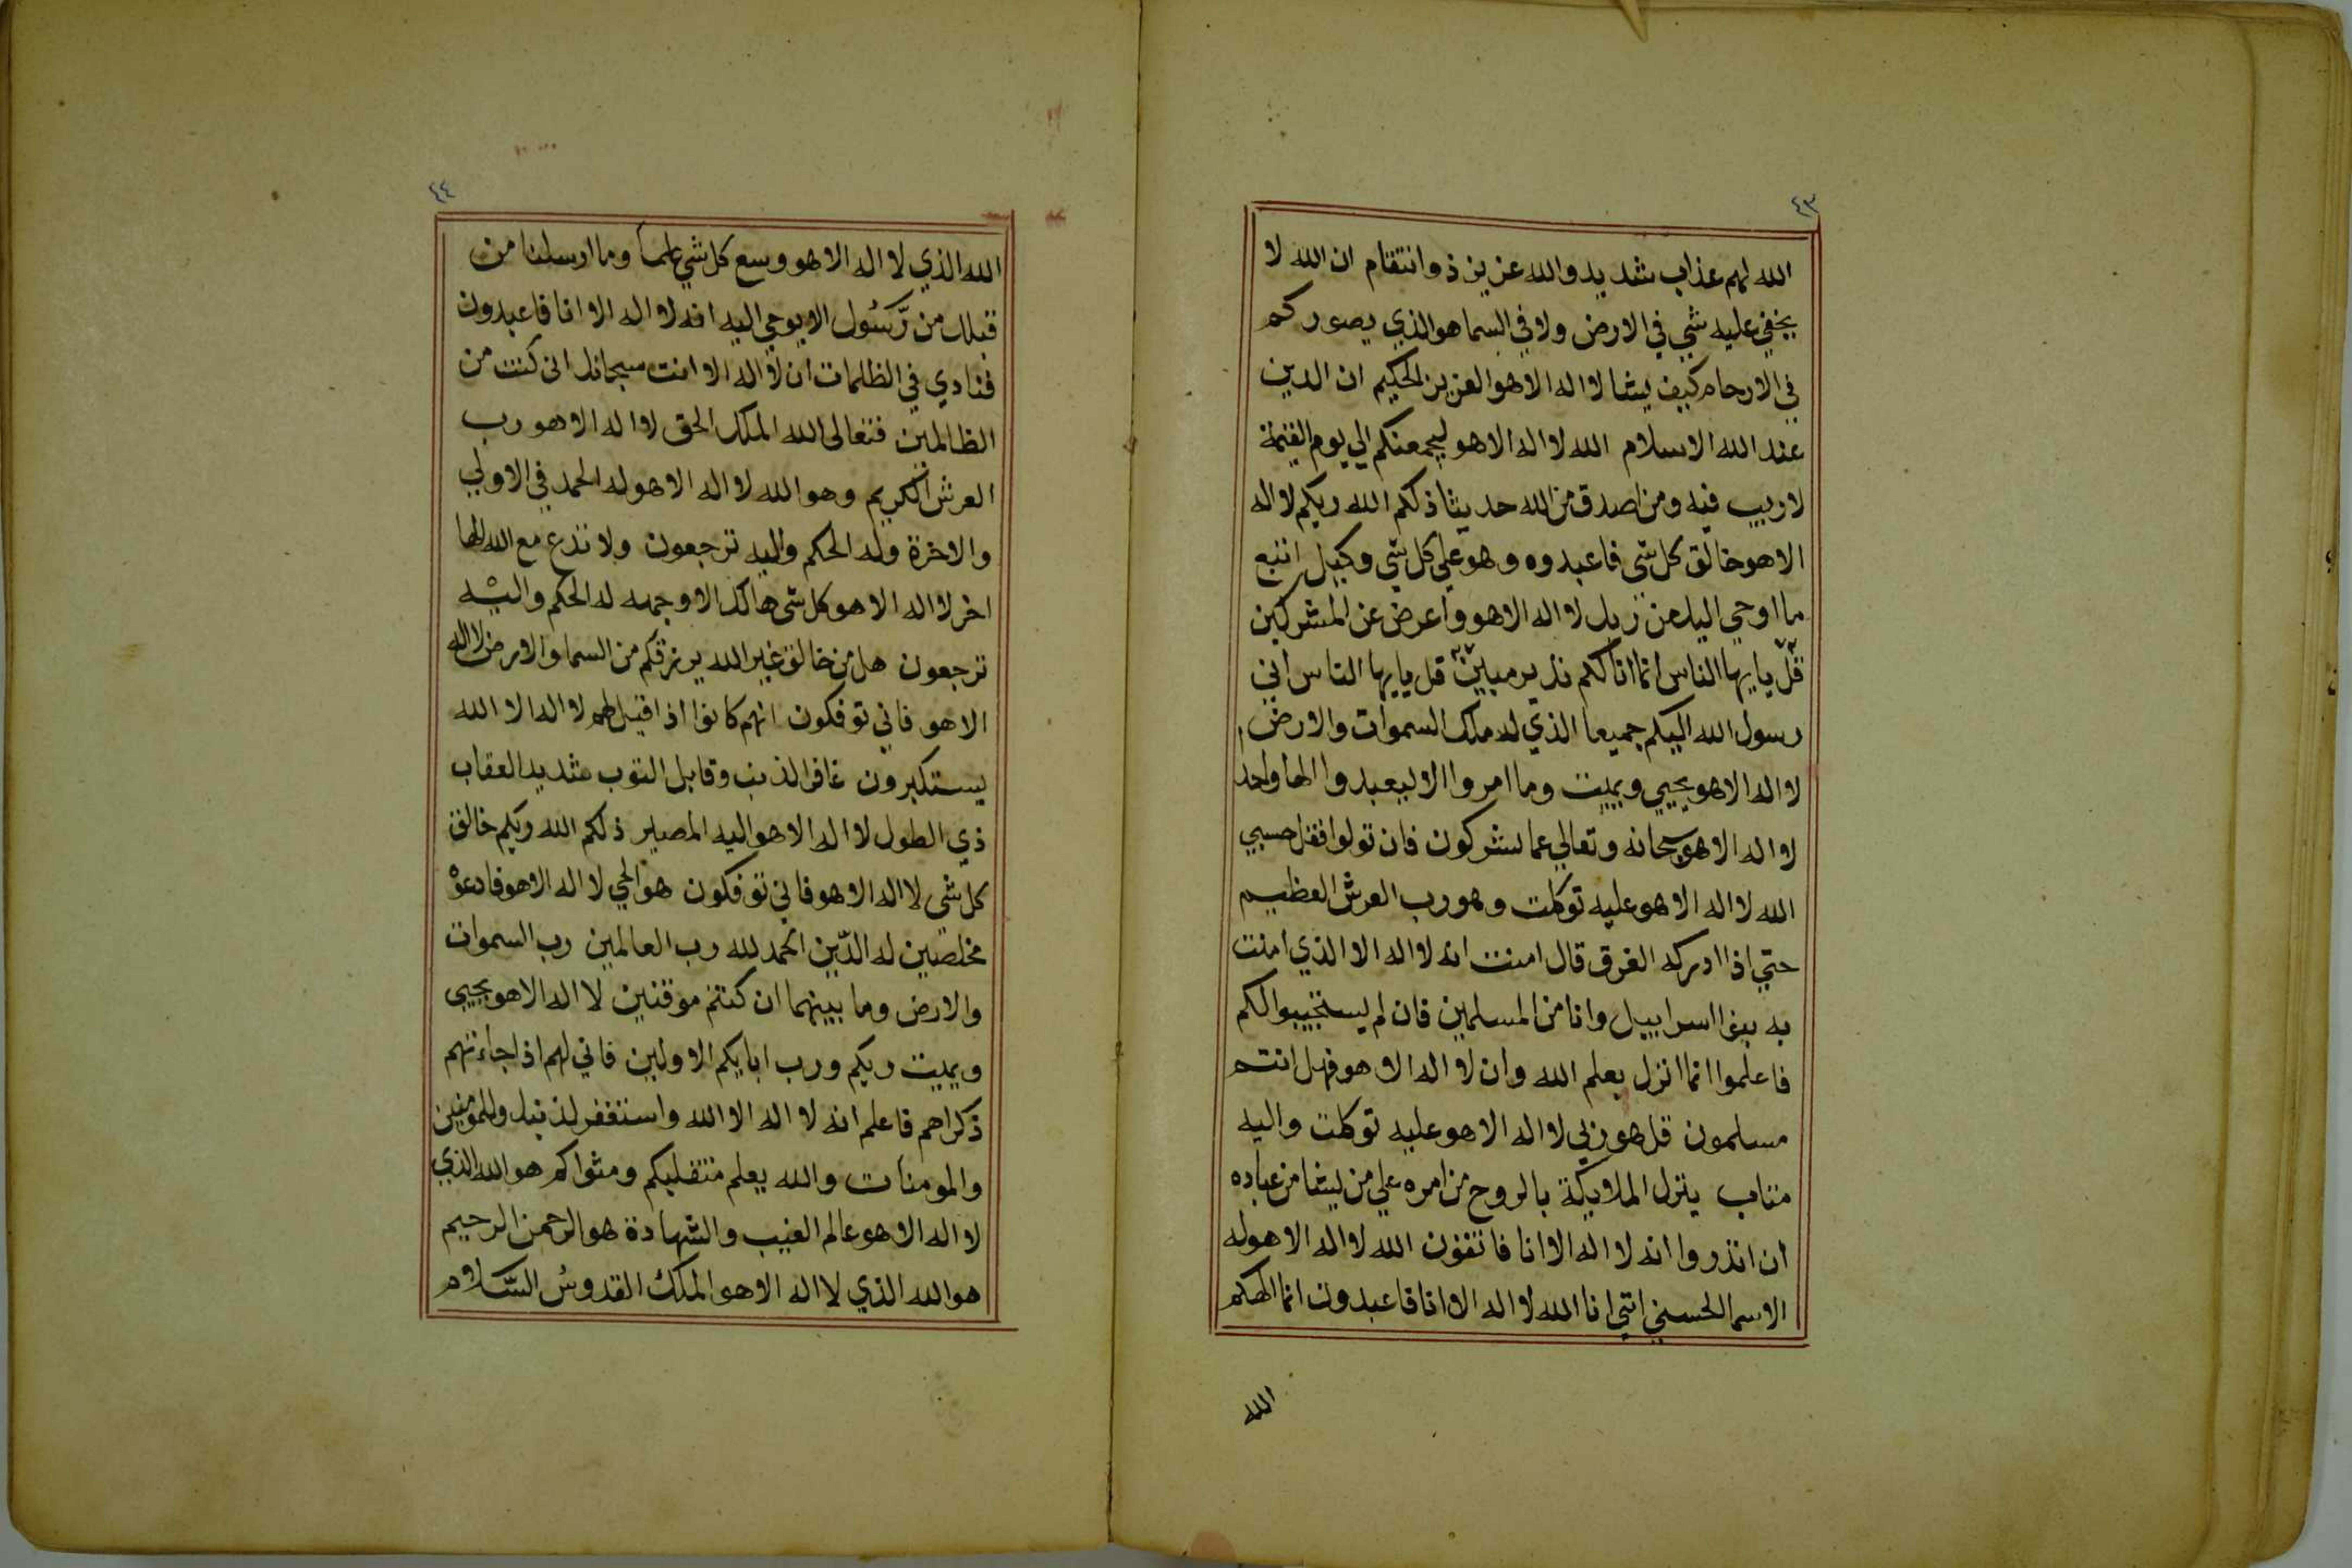 ٤٣
الله لهم عذاب شديد والله عزيز ذو انتقام ان الله لا
يخفي عليه شي في الارض ولا في السما هو الذي يصوركم
في الارحام كيف يشا لا اله الا هو العزيز الحكيم ان الدين
عند الله الاسلام الله لا اله الا هو ليجمعنكم الي يوم القيمة
لا ريب فيه ومن اصدق من الله حديثا ذلكم الله ربكم لا اله
الا هو خالق كل شي فاعبدوه وهو علي كل شي وكيل اتبع
ما اوحي اليك من ربك لا اله الا هو واعرض عن المشركين
قل يايها الناس انما انا لكم نذير مبين قل يايها الناس اني
رسول الله اليكم جميعا الذي له ملك السموات والارض
لا اله الا هو يحيي ويميت وما امروا الا ليعبدوا الها واحد
لا اله الا هو سبحانه وتعالي عما يشركون فان تولوا فقل حسبي
الله لا اله الا هو عليه توكلت وهو رب العرش العظيم
حتي اذا ادركه الغرق قال امنت انه لا اله الا الذي امنت
به بنوا اسراييل وانا من المسلمين فان لم يستجيبوا لكم
فاعلموا انما انزل بعلم الله وان لا اله الا هو فهل انتم
مسلمون قل هو ربي لا اله الا هو عليه توكلت واليه
متاب ينزل الملايكة بالروح من امره علي من يشا من عباده
ان انذروا انه لا اله الا انا فاتقون الله لا اله الا هو له
الاسما الحسني انني انا الله لا اله الا انا فاعبدون انما الهكم
الله
٤٤
الله الذي لا اله الا هو وسع كل شي علما وما ارسلنا من
قبلك من رَّسُول الا يوحي اليه انه لا اله الا انا فاعبدون
فنادي في الظلمات ان لا اله الا انت سبحانك اني كنت من
الظالمين فتعالى الله الملك الحق لا اله الا هو رب
العرش الكريم وهو الله لا اله الا هو له الحمد في الاولي
والاخرة وله الحكم واليه ترجعون ولا تدع مع الله الها
اخر لا اله الا هو كل شي هالك الا وجهه له الحكم واليْه
ترجعون هل من خالق غير الله يرزقكم من السما والارض لا اله
الا هو فاني توفكون انهم كانوا اذا قيل لهم لا اله الا الله
يستكبرون غافر الذنب وقابل التوب شديد العقاب
ذي الطول لا اله الا هو اليه المصير ذلكم الله ربكم خالق
كل شي لا اله الا هو فاني توفكون هو الحي لا اله الا هو فادعوْ
مخلصين له الدّين الحمد لله رب العالمين رب السموات
والارض وما بينهما ان كنتم موقنين لا اله الا هو يحيي
ويميت ربكم ورب ابايكم الاولين فاني لهم اذا جاءتهم
ذكراهم فاعلم انه لا اله الا الله واستغفر لذنبك وللمؤمنين
والمومنات والله يعلم متقلبكم ومثواكم هو الله الذي
لا اله الا هو عالم الغيب والشهادة هو الرحمن الرحيم
هو الله الذي لا اله الا هو الملك القدوسُ السَّلام